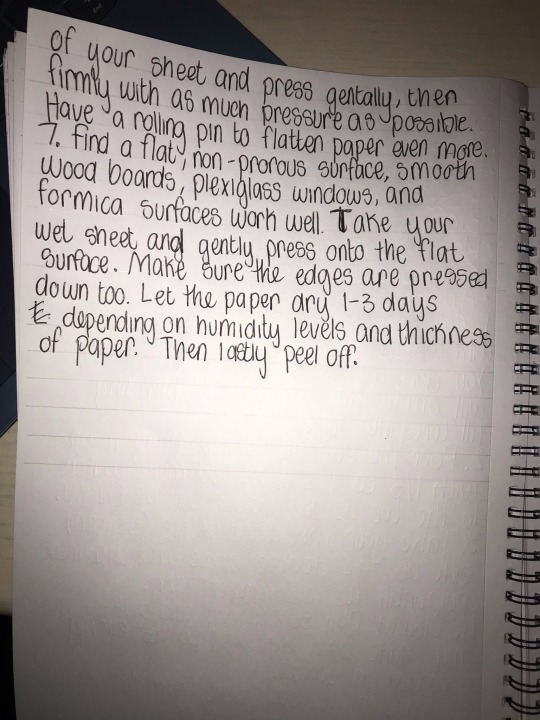 of your sheet and press gentally, then
firmly with as much pressure as possible.
Have a rolling pin to flatten paper even more.
7. find a flat, non-prorous surface, smooth
wood boards, plexiglass windows, and
formica surfaces work well. Take your
wet sheet and gently press onto the flat
surface. Make sure the edges are pressed
down too. Let the paper dry 1-3 days
depending on humidity levels and thickness
of paper. Then lastly peel off.